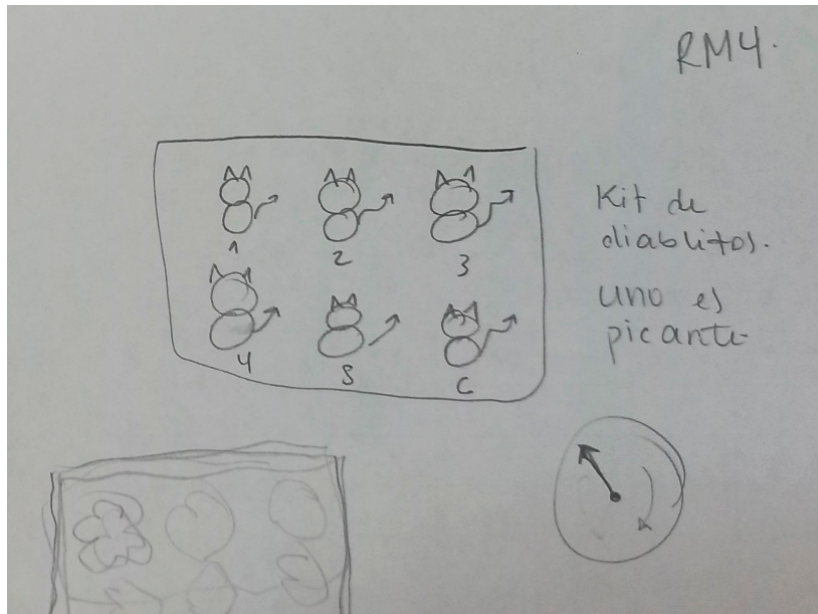 RM4.
1 2 3
4 5 6
Kit de
diablitos.
uno es
picante